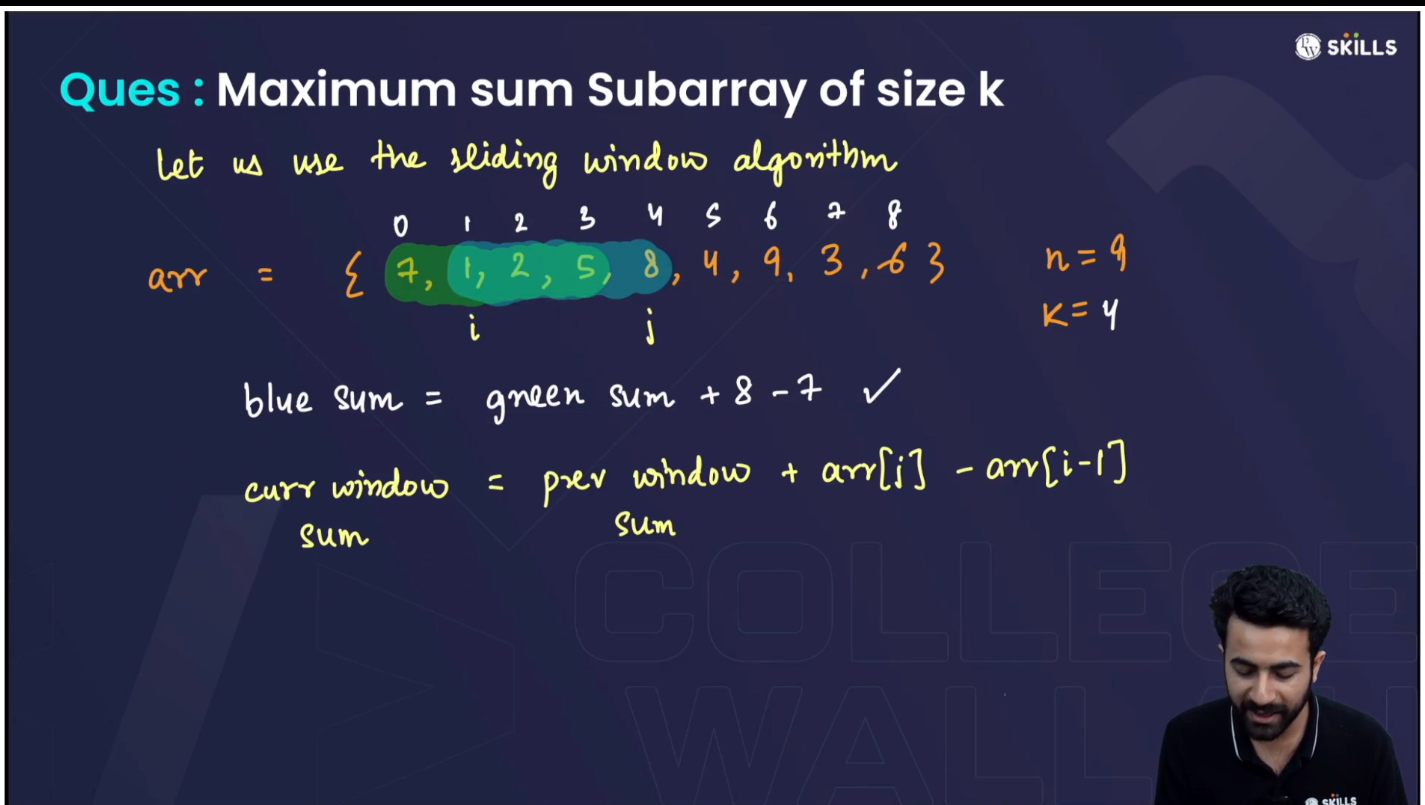 PW SKILLS
Ques : Maximum sum Subarray of size k
Let us use the sliding window algorithm
0 1 2 3 4 5 6 7 8
arr = { 7, 1, 2, 5, 8, 4, 9, 3, 6 } n = 9
K = 4
i j
blue sum = green sum + 8 - 7 ✓
curr window = prev window + arr[j] - arr[i-1]
sum sum
COLLEGE
WALLAH
SKILLS